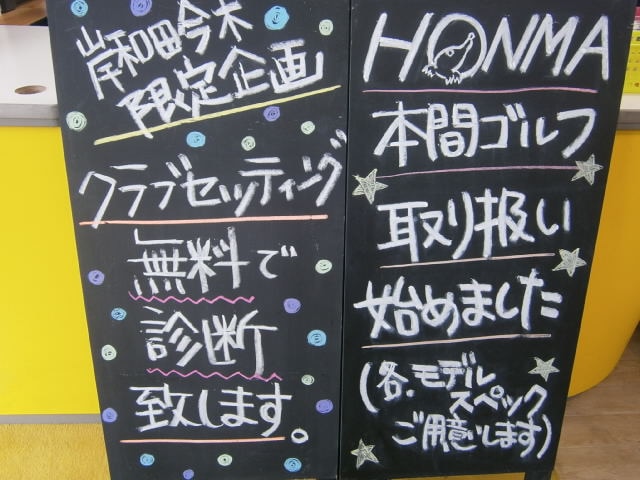 岸和田今木
限定企画
クラブセッティング
無料で
診断
致します。
HONMA
本間ゴルフ
取り扱い
始めました
(各.モデル
スペック
ご用意します)